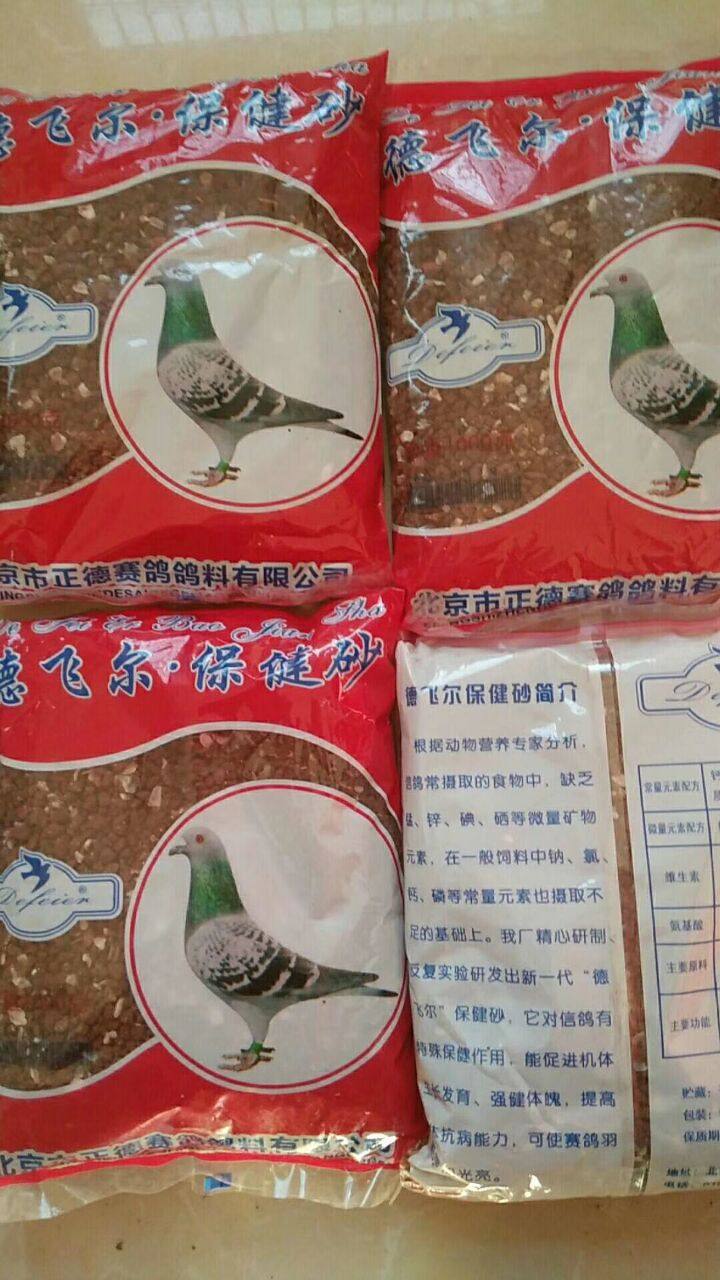 德飞尔·保健砂
Defeier®
京市正德赛鸽鸽料有限公司
德飞尔·保健
Defeier®
北京市正德赛鸽鸽料有
Fei Er Bao Jian Sha
德飞尔·保健砂
Defeier®
北京市正德赛鸽鸽料有限公司
德飞尔保健砂简介
根据动物营养专家分析,
鸽常摄取的食物中,缺乏
锰、锌、碘、硒等微量矿物
元素,在一般饲料中钠、氯、
钙、磷等常量元素也摄取不
足的基础上。我厂精心研制、
反复实验研发出新一代“德
飞尔”保健砂,它对信鸽有
特殊保健作用,能促进机体
生长发育、强健体魄,提高
抗病能力,可使赛鸽羽
光亮。
常量元素配方
微量元素配方
维生素
氨基酸
主要原料
主要功能
贮藏:
包装:
保质期
地址:北
电话: